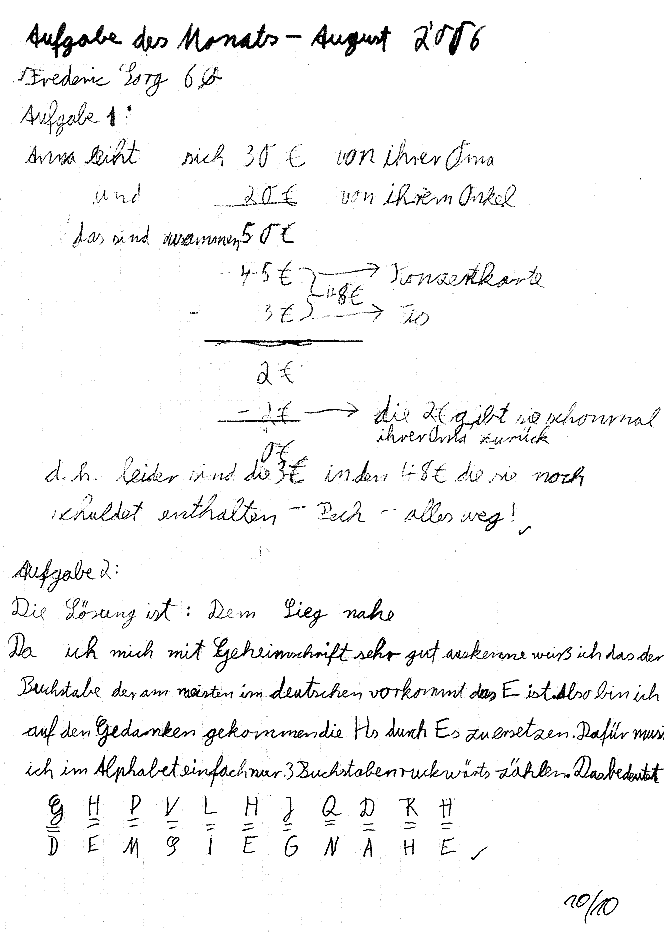 Aufgabe des Monats – August 2006
Frederic Sorg 6b
Aufgabe 1:
Anna leiht sich 30 € von ihrer Oma
und 20 € von ihrem Onkel
das sind zusammen 50 €
- 45 € → Konzertkarte
48 €
- 3 € → Eis
2 €
- 2 € → die 2€ gibt sie schonmal
ihrer Oma zurück
0 €
d.h. leider sind die 3€ in den 48€ die sie noch
schuldet enthalten – Pech – alles weg! ✓
Aufgabe 2:
Die Lösung ist: Dem Sieg nahe
Da ich mich mit Geheimschrift sehr gut auskenne weiß ich das der
Buchstabe der am meisten im deutschen vorkommt das E ist. Also bin ich
auf den Gedanken gekommen die Hs durch Es zu ersetzen. Dafür muss
ich im Alphabet einfach nur 3 Buchstaben rückwärts zählen. Das bedeutet
G H P V L H J Q D K H
D E M S I E G N A H E ✓
10/10